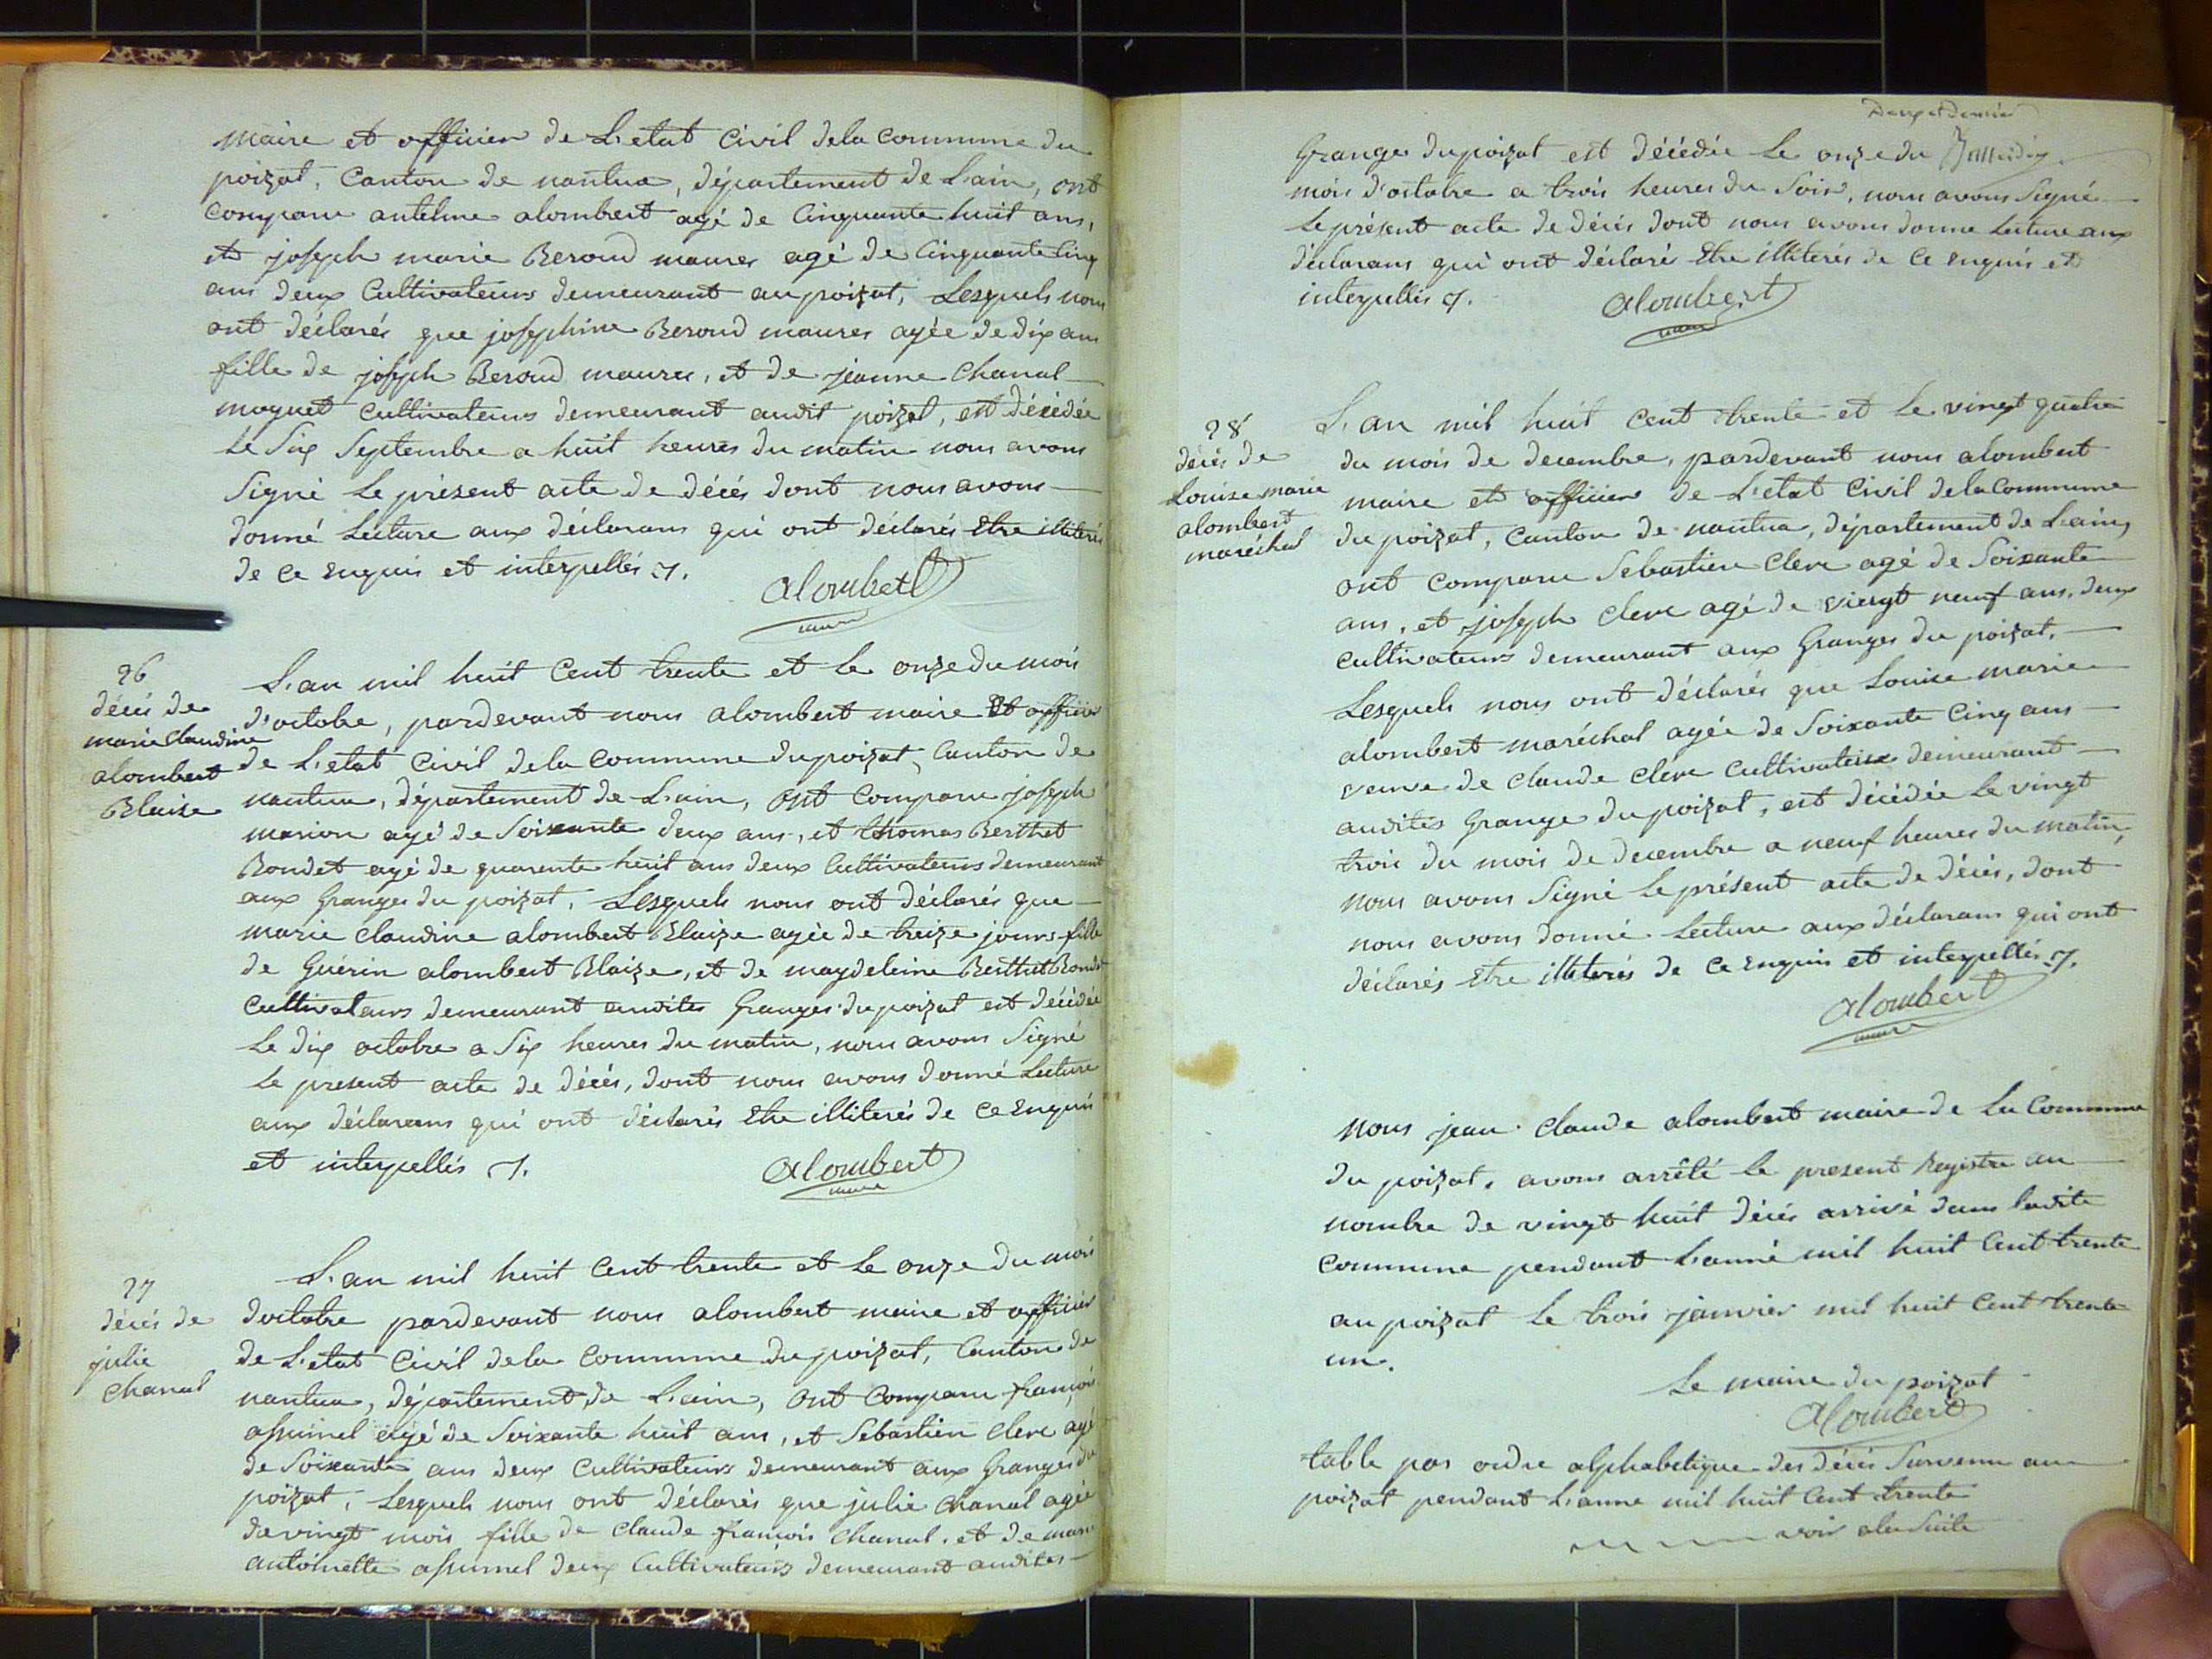 maire et officier de L'etat Civil dela Commune du
poizat, Canton de nantua, département de L'ain, ont
comparu antelme alombert agé de Cinquante huit ans,
et joseph marie Beroud maurer agé de Cinquante Cinq
ans deux Cultivateurs demeurant au poizat, Lesquels nous
ont déclarés que josephine Beroud maurer agée de dix ans
fille de joseph Beroud maurer, et de jeanne Chanal
moquet Cultivateurs demeurant audit poizat, est décédée
Le Six Septembre a huit heures du matin nous avons
Signé Le présent acte de décés dont nous avons
donné Lecture aux déclarans qui ont déclarés Etre illiterés
de Ce Enquis et interpellés ./.
alombert
maire
26
décés de
marie Claudine
alombert
Blaize
L'an mil huit Cent trente et Le onze du mois
d'octobre, pardevant nous alombert maire Et officier
de L'etat Civil dela Commune du poizat, Canton de
nantua, département de L'ain, ont comparu joseph
marion agé de Soixante deux ans, et thomas Berthet
Bondet agé de quarente huit ans deux Cultivateurs demeurant
aux Granges du poizat, Lesquels nous ont déclarés que
marie claudine alombert Blaize agée de treize jours fille
de Guérin alombert Blaize, et de magdeleine Berthet Bondet
Cultivateurs demeurant audites Granges du poizat est décédée
Le dix octobre a Six heures du matin, nous avons Signé
Le present acte de décés, dont nous avons donné Lecture
aux déclarans qui ont déclarés Etre illiterés de Ce Enquis
et interpellés ./.
alombert
maire
27
décés de
julie
Chanal
L'an mil huit Cent trente et Le onze du mois
doctobre pardevant nous alombert maire et officier
de L'etat Civil dela Commune du poizat, Canton de
nantua, département de L'ain, ont Comparu françois
assumel agé de Soixante huit ans, et Sebastien Clerc agé
de Soixante ans deux Cultivateurs demeurant aux Granges du
poizat, Lesquels nous ont déclarés que julie Chanal agée
de vingt mois fille de Claude françois Chanal, et de marie
antoinette assumel deux Cultivateurs demeurant audites
Deux et dernier
Grange du poizat est décédée Le onze du
mois d'octobre a trois heures du Soir, nous avons Signé
Le présent acte de décés dont nous avons donné Lecture aux
déclarans qui ont déclaré Etre illiterés de Ce enquis et
interpellés ./.
alombert
maire
28
décés de
Louise marie
alombert
maréchal
L'an mil huit Cent trente et Le vingt quatre
du mois de decembre, pardevant nous alombert
maire et officier de L'etat Civil dela Commune
du poizat, Canton de nantua, département de L'ain,
ont Comparu Sebastien Clerc agé de Soixante
ans, et joseph Clerc agé de vingt neuf ans, deux
Cultivateurs demeurant aux Granges du poizat,
Lesquels nous ont déclarés que Louise marie
alombert maréchal agée de Soixante Cinq ans
veuve de claude Clerc Cultivateur demeurant
audites Grange du poizat, est décédée Le vingt
trois du mois de decembre a neuf heures du matin,
nous avons Signé Le présent acte de décés, dont
nous avons donné Lecture aux déclarans qui ont
déclarés Etre illiterés de Ce Enquis et interpellés ./.
alombert
maire
Nous jean Claude alombert maire de La Commune
du poizat, avons arrêté Le present Registre au
nombre de vingt huit décés arrivé dans Ladite
Commune pendant L'anné mil huit Cent trente
au poizat Le trois janvier mil huit Cent trente
un.
Le maire du poizat
Alombert
table par ordre alphabetique des décés Survenu au
poizat pendant L'anne mil huit Cent trente
voir a la Suite